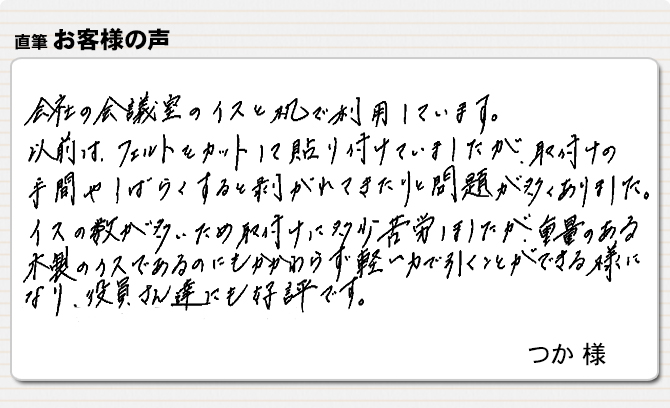 直筆 お客様の声
会社の会議室のイスと机で利用しています。
以前は、フェルトをカットして貼り付けていましたが、取付けの
手間やしばらくすると剥がれてきたりと問題が多くありました。
イスの数が多いため取付けに多少苦労しましたが、重量のある
木製のイスであるのにもかかわらず軽い力で引くことができる様に
なり、役員さん達にも好評です。
つか 様